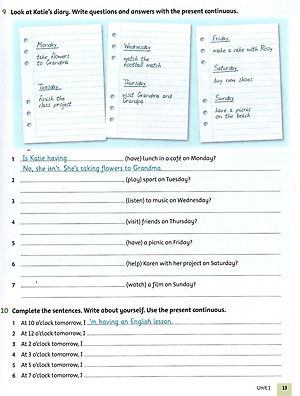 9 Look at Katie's diary. Write questions and answers with the present continuous.
Monday
take flowers
to Grandma
Tuesday
finish the
class project
Wednesday
watch the
football match
Thursday
visit Grandma and
Grandpa
Friday
make a cake with Rosy
Saturday
buy new shoes
Sunday
have a picnic
on the beach
1 Is Katie having (have) lunch in a café on Monday?
No, she isn't. She's taking flowers to Grandma.
2 (play) sport on Tuesday?
3 (listen) to music on Wednesday?
4 (visit) friends on Thursday?
5 (have) a picnic on Friday?
6 (help) Karen with her project on Saturday?
7 (watch) a film on Sunday?
10 Complete the sentences. Write about yourself. Use the present continuous.
1 At 10 o'clock tomorrow, I 'm having an English lesson.
2 At 12 o'clock tomorrow, I
3 At 2 o'clock tomorrow, I
4 At 3 o'clock tomorrow, I
5 At 5 o'clock tomorrow, I
6 At 7 o'clock tomorrow, I
Unit 1 13